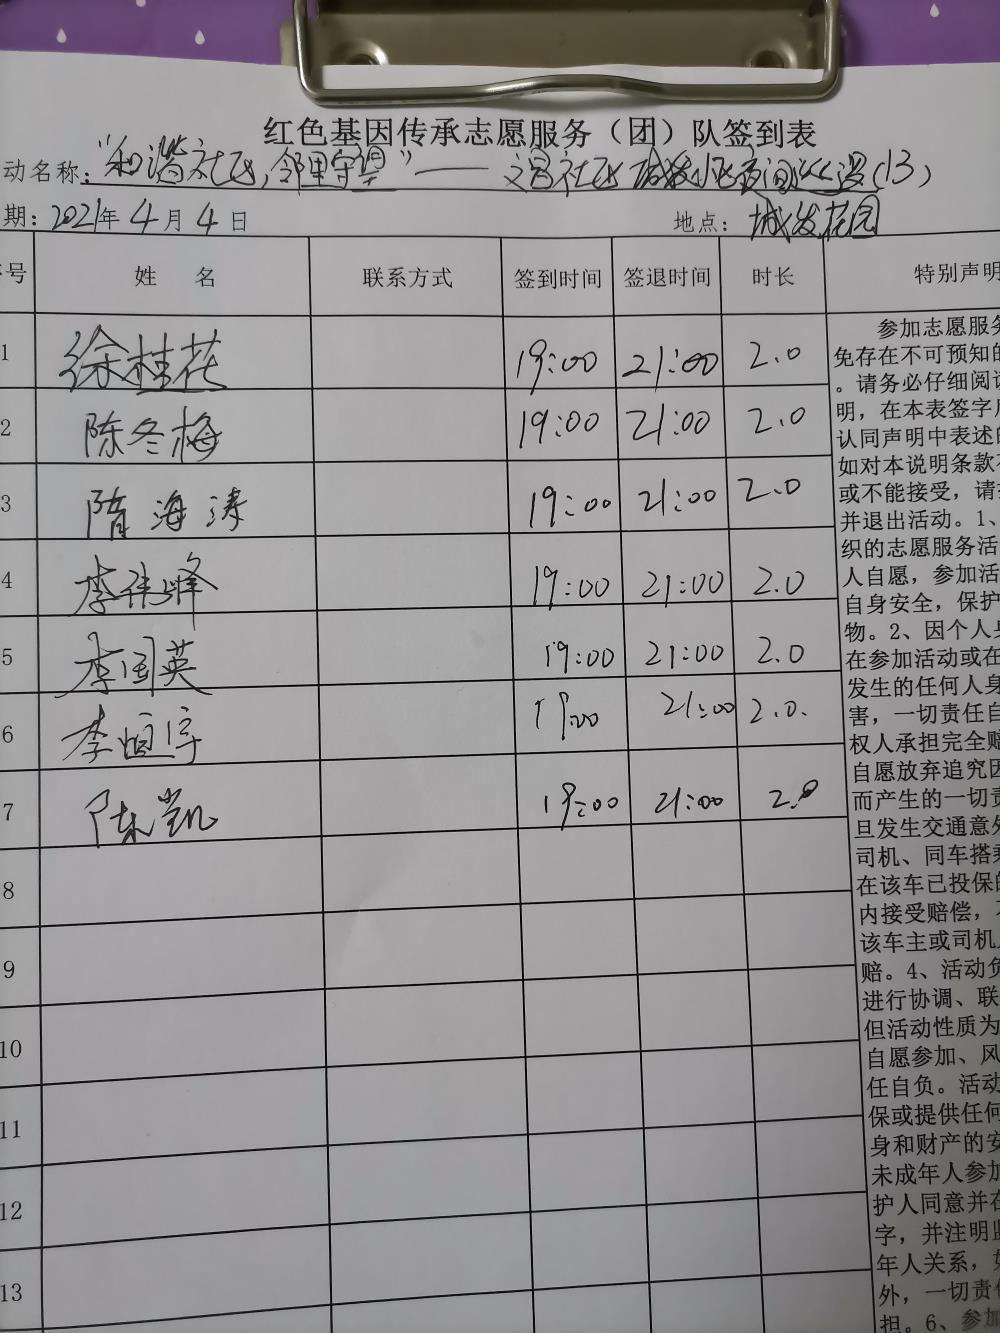 红色基因传承志愿服务（团）队签到表
动名称："和谐社区，邻里守望"——文昌社区城发小区夜间巡逻（13）
期：2021年 4月 4日 地点：城发花园
号 姓 名 联系方式 签到时间 签退时间 时长 特别声明
1 徐桂花 19:00 21:00 2.0
2 陈冬梅 19:00 21:00 2.0
3 隋海涛 19:00 21:00 2.0
4 李伟峰 19:00 21:00 2.0
5 李国英 19:00 21:00 2.0
6 李恒宇 19:00 21:00 2.0.
7 陈凯 19:00 21:00 2.0
8
9
10
11
12
13
参加志愿服务
免存在不可预知的
。请务必仔细阅读
明，在本表签字后
认同声明中表述的
如对本说明条款不
或不能接受，请
并退出活动。1、
织的志愿服务活
人自愿，参加活
自身安全，保护
物。2、因个人
在参加活动或在
发生的任何人身
害，一切责任自
权人承担完全赔
自愿放弃追究因
而产生的一切责
旦发生交通意外
司机、同车搭乘
在该车已投保的
内接受赔偿，不
该车主或司机
赔。4、活动负
进行协调、联
但活动性质为
自愿参加、风
任自负。活动
保或提供任何
身和财产的安
未成年人参加
护人同意并在
字，并注明监
年人关系，如
外，一切责任
担。6、参加